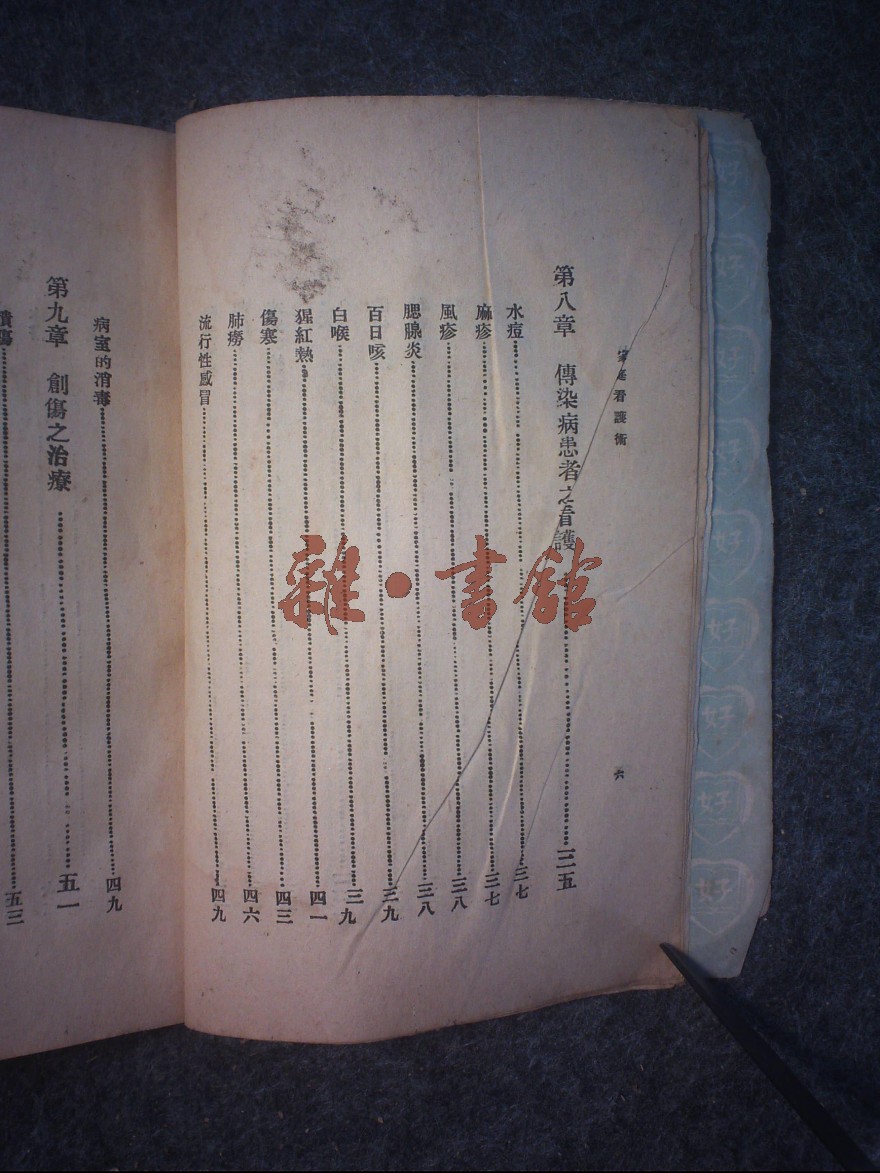 家庭看護術
六
第八章 傳染病患者之看護………三五
水痘………三七
麻疹………三七
風疹………三八
腮腺炎………三八
百日咳………三九
白喉………三九
猩紅熱………四一
傷寒………四三
肺癆………四六
流行性感冒………四九
病室的消毒………四九
第九章 創傷之治療………五一
………五三
雜·書館
好
好
好
好
好
好
好
好